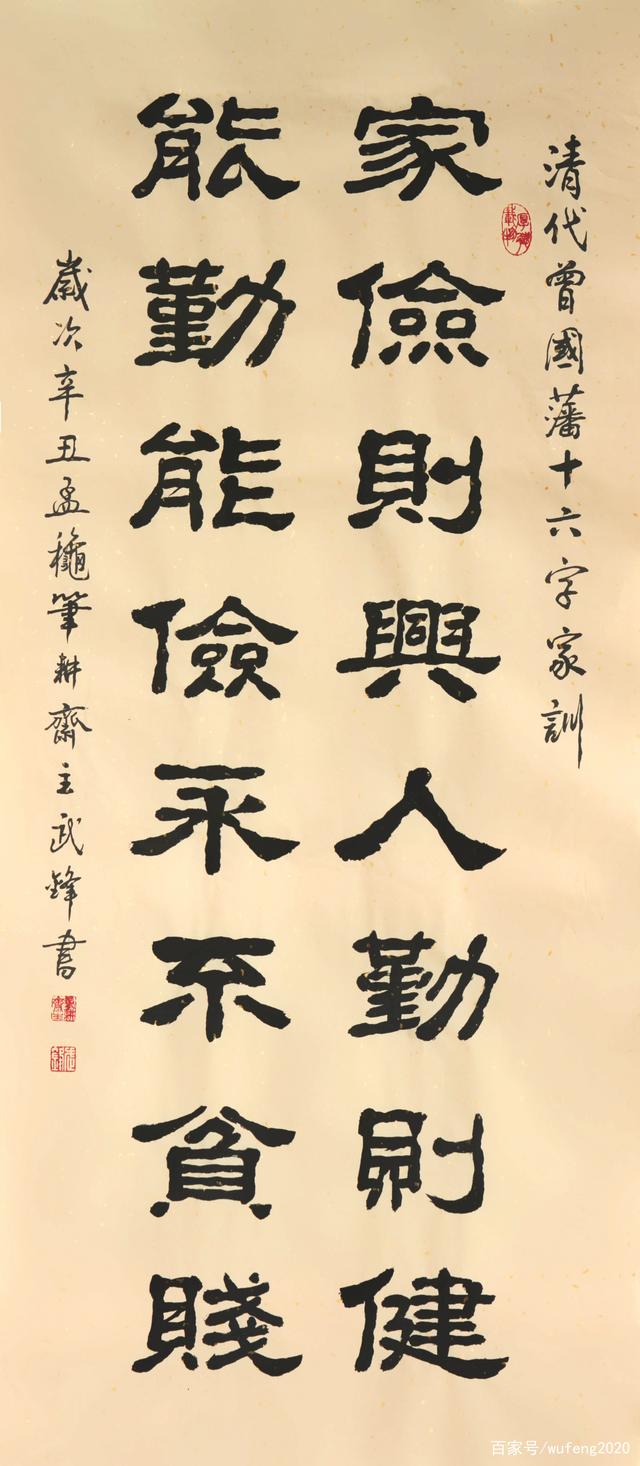 清代曾國藩十六字家訓
家儉則興人勤則健
能勤能儉永不貧賤
歲次辛丑孟穐筆耕齋主武鋒書
百家号/wufeng2020